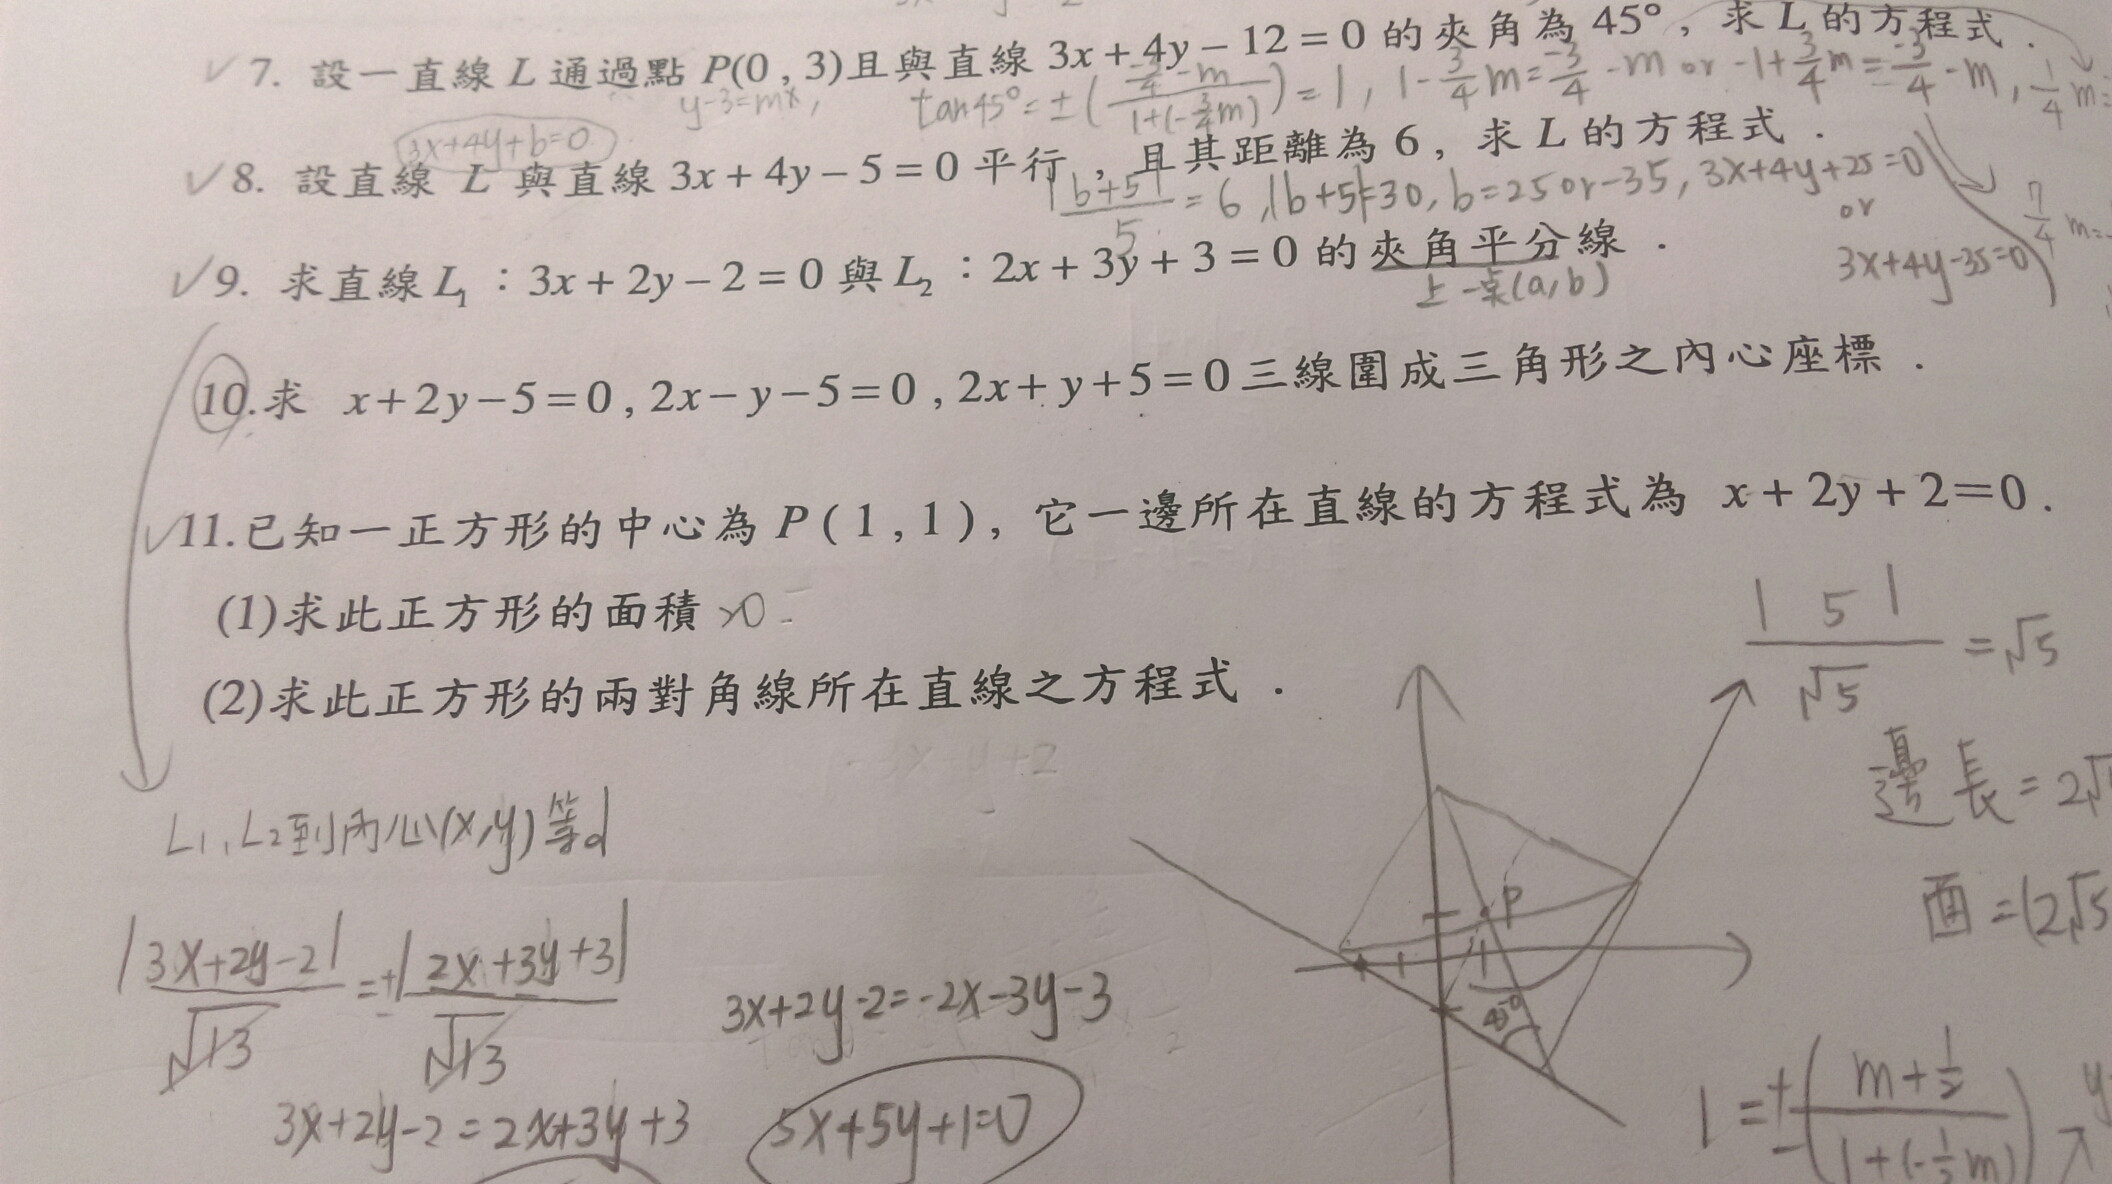 7. 設一直線 L 通過點 P(0 , 3)且與直線 3x + 4y − 12 = 0 的夾角為 45° , 求 L 的方程式 .
y-3=mx,
tan45°=±(\frac{-\frac{3}{4}-m}{1+(-\frac{3}{4}m)})=1, 1-\frac{3}{4}m=\frac{-3}{4}-m or -1+\frac{3}{4}m=\frac{-3}{4}-m, \frac{1}{4}m=
3x+4y+b=0
8. 設直線 L 與直線 3x + 4y − 5 = 0 平行 , 且其距離為 6 , 求 L 的方程式 .
\frac{|b+5|}{5}=6, |b+5|=30, b=25 or -35, 3x+4y+25=0
or
3x+4y-35=0
\frac{7}{4}m=
9. 求直線 L₁ : 3x + 2y − 2 = 0 與 L₂ : 2x + 3y + 3 = 0 的夾角平分線 .
上一點(a,b)
10.求 x + 2y − 5 = 0 , 2x − y − 5 = 0 , 2x + y + 5 = 0 三線圍成三角形之內心座標 .
11.已知一正方形的中心為 P ( 1 , 1 ) , 它一邊所在直線的方程式為 x + 2y + 2＝0 .
(1)求此正方形的面積 >0
(2)求此正方形的兩對角線所在直線之方程式 .
\frac{|5|}{√5}=√5
邊長=2√
面=(2√5
L₁,L₂到內心(x,y)等d
\frac{|3x+2y-2|}{√13}=±\frac{|2x+3y+3|}{√13}
3x+2y-2=-2x-3y-3
3x+2y-2=2x+3y+3
5x+5y+1=0
P
1
45°
1=±(\frac{m+\frac{1}{2}}{1+(-\frac{1}{2}m)})
y